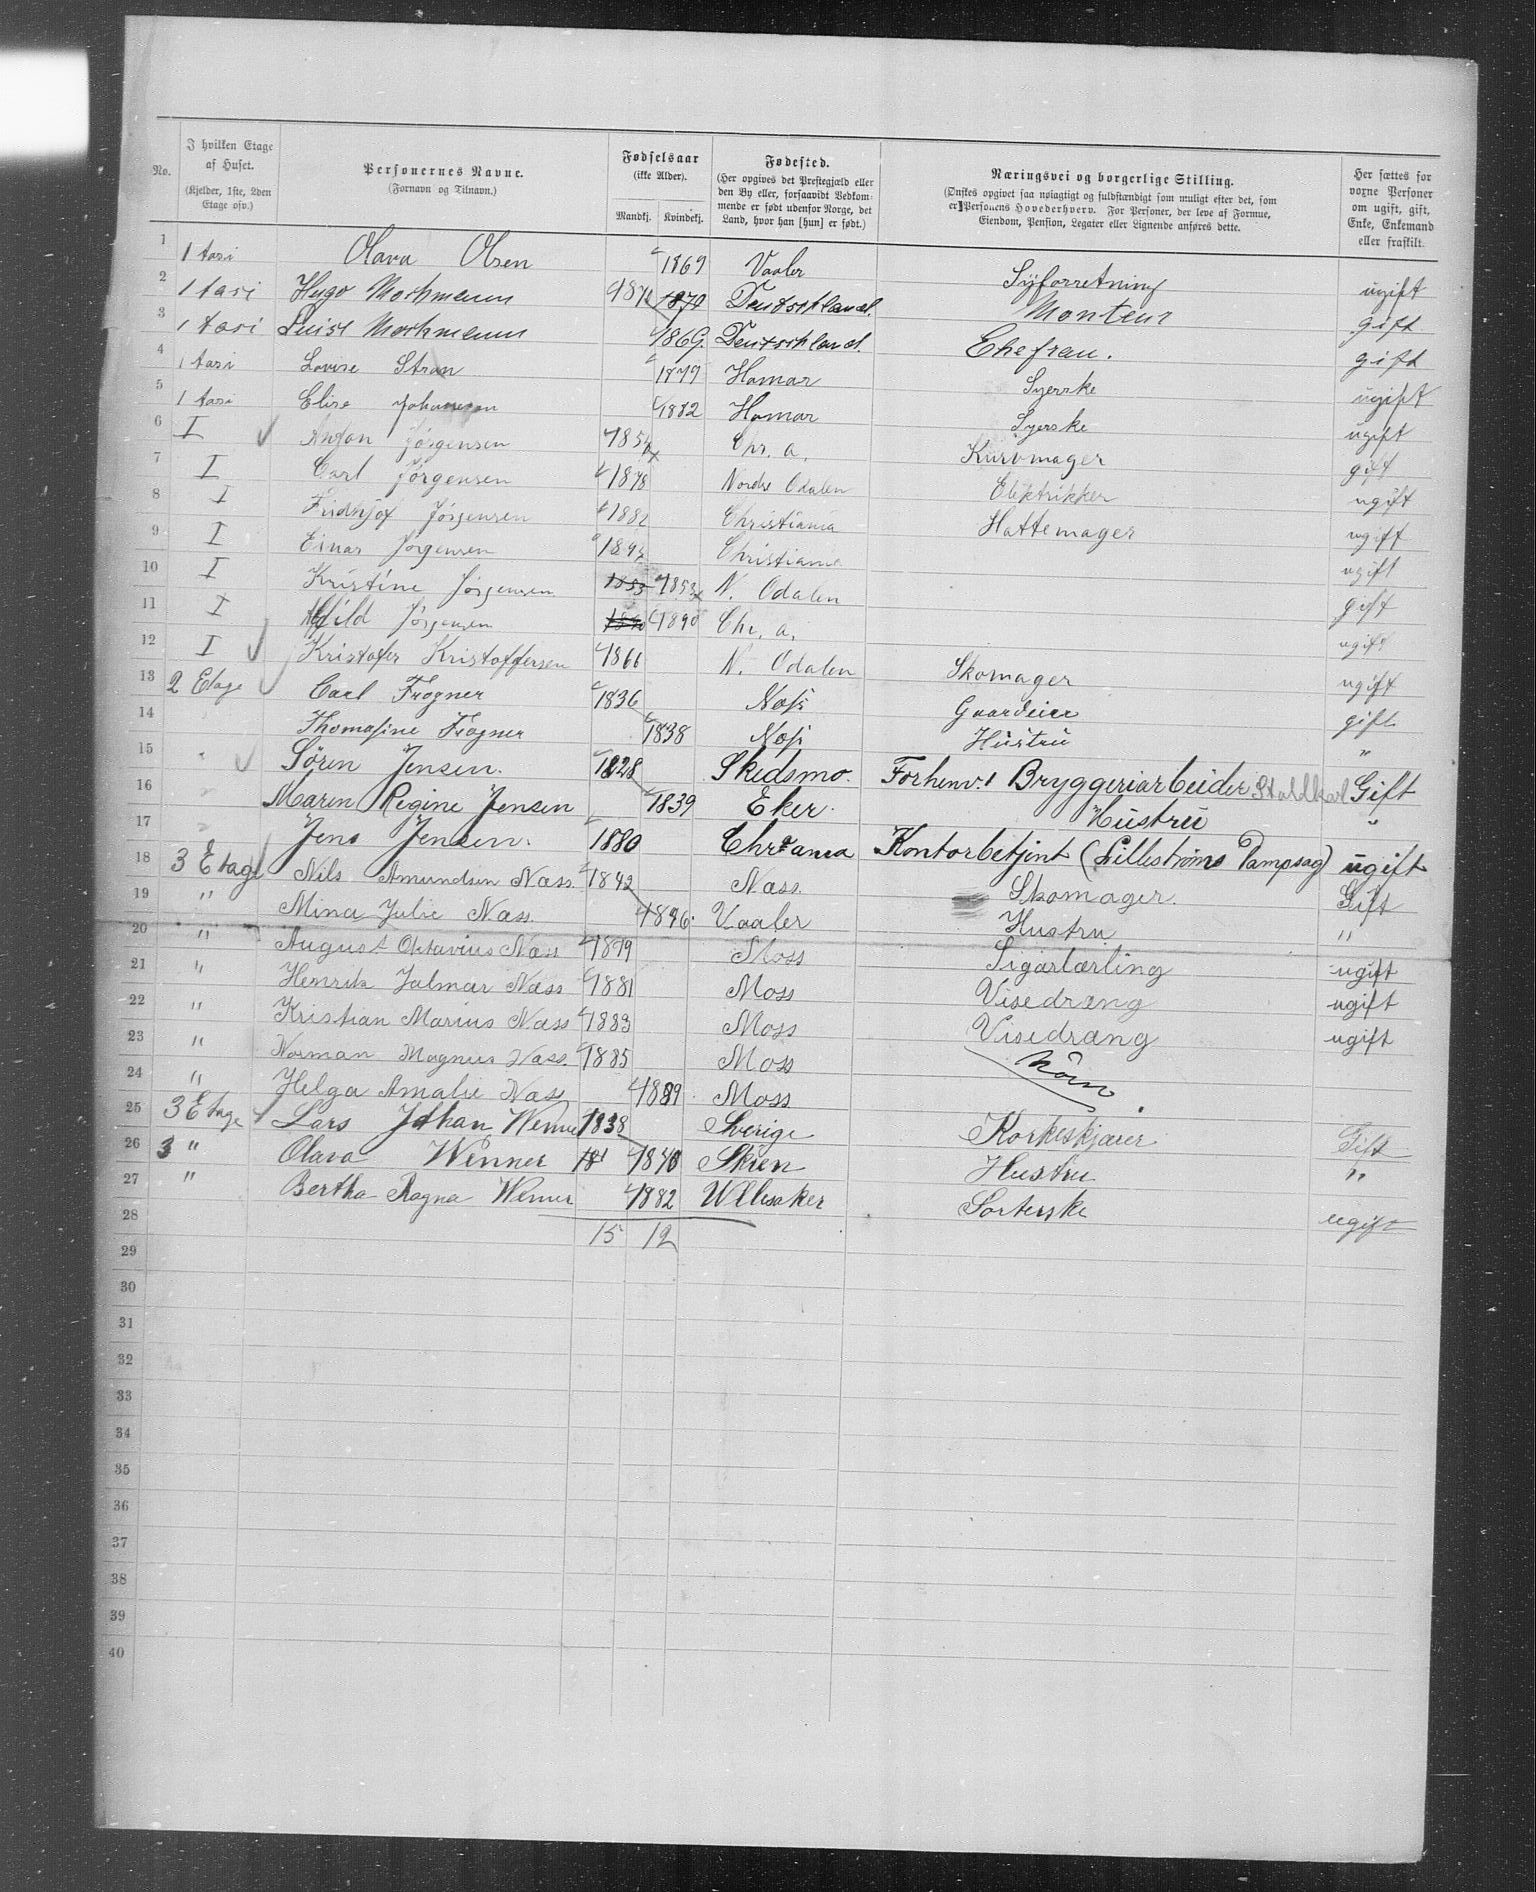 No. | I hvilken Etage af Huset. (Kjelder, 1ste, 2den Etage osv.) | Personernes Navne. (Fornavn og Tilnavn.) | Fødselsaar (ikke Alder). Mandkj. Kvindekj. | Fødested. (Her opgives det Præstegjæld eller den By eller, forsaavidt Vedkommende er født udenfor Norge, det Land, hvor han [hun] er født.) | Næringsvei og borgerlige Stilling. (Ønskes opgivet saa nøiagtigt og fuldstændigt som muligt efter det, som er Personens Hovederhverv. For Personer, der leve af Formue, Eiendom, Pension, Legater eller Lignende anføres dette. | Her sættes for voxne Personer om ugift, gift, Enke, Enkemand eller fraskilt.
1 | 1 tasi | Olava Olsen | 1869 | Vaaler | Syforretning | ugift
2 | 1 tasi | Hugo Mochmann | 1870 | Deutschland. | Monteur | gift
3 | 1 tasi | Luise Mochmann | 1869. | Deutschland. | Ehefrau. | gift
4 | 1 tasi | Lovise Strøn | 1879 | Hamar | Syerske | ugift
5 | 1 tasi | Elise Johansen | 1882 | Hamar | Syerske | ugift
6 | I | Anton Jørgensen | 185 | Chr. a. | Kurvmager | gift
7 | I | Carl Jørgensen | 1878 | Nordre Odalen | Elektrikker | ugift
8 | I | Fridhjof Jørgensen | 1882 | Christiania | Hattemager | ugift
9 | I | Einar Jørgensen | 1893 | Christiania | ugift
10 | I | Kristine Jørgensen | 1853 1853 | N. Odalen | gift
11 | I | Alfild Jørgensen | 1890 1890 | Chr. a. | ugift
12 | I | Kristofer Kristoffersen | 1866 | N. Odalen | Skomager | ugift
13 | 2 Etage | Carl Frogner | 1836 | Næs | Gaardeier | gift
14 | " | Thomasine Frogner | 1838 | Næs | Hustru | "
15 | " | Sören Jensen. | 1828 | Skedsmo. | Forhenv. Bryggeriarbeider Staldkarl | Gift
16 | " | Maren Regine Jensen | 1839 | Eker. | Hustru | "
17 | " | Jens Jensen. | 1880 | Chrania | Kontorbetjent (Lillestrøms Dampsag) | ugift
18 | 3 Etage | Nils Amundsen Næss. | 1842 | Næss. | Skomager. | Gift
19 | " | Mina Julie Næss. | 1846. | Vaaler | Hustru | "
20 | " | August Oktavius Næss | 1879 | Moss | Sigarlærling | ugift
21 | " | Henrik Jalmar Næss | 1881 | Moss | Visedræng | ugift
22 | " | Kristian Marius Næss | 1883 | Moss | Visedræng | ugift
23 | " | Norman Magnus Næss. | 1885 | Moss
24 | " | Helga Amalie Næss | 1889. | Moss
25 | 3 Etage | Lars Johan Wenner | 1838 | Sverige | Korkeskjærer | Gift
26 | 3 " | Olava Winner | 1840 | Skien | Hustru | "
27 | " | Bertha Ragna Wenner | 1882 | Ullesaker | Sorterske | ugift
28 | 15 12
29
30
31
32
33
34
35
36
37
38
39
40